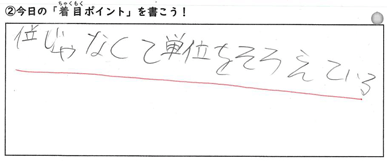 ②今日の「着目ポイント」を書こう！
位じゃなくて単位をそろえている